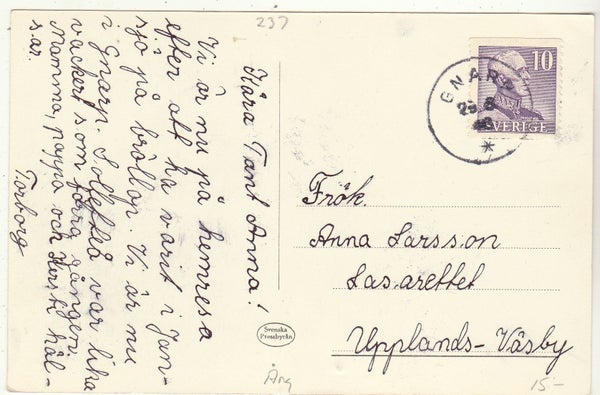 237
Kära Tant Anna!
Vi är nu på hemresa
efter att ha varit i Jan-
sjö på bröllop. Vi är nu
i Gnarp. Sollefteå var lika
vackert som förra gången.
Mamma, pappa och Kersti häl-
s.ar.
Torborg
10
SVERIGE
GNARP
Frök.
Anna Larsson
Lasarettet
Upplands-Väsby
Svenska
Pressbyrån
Ång
15-